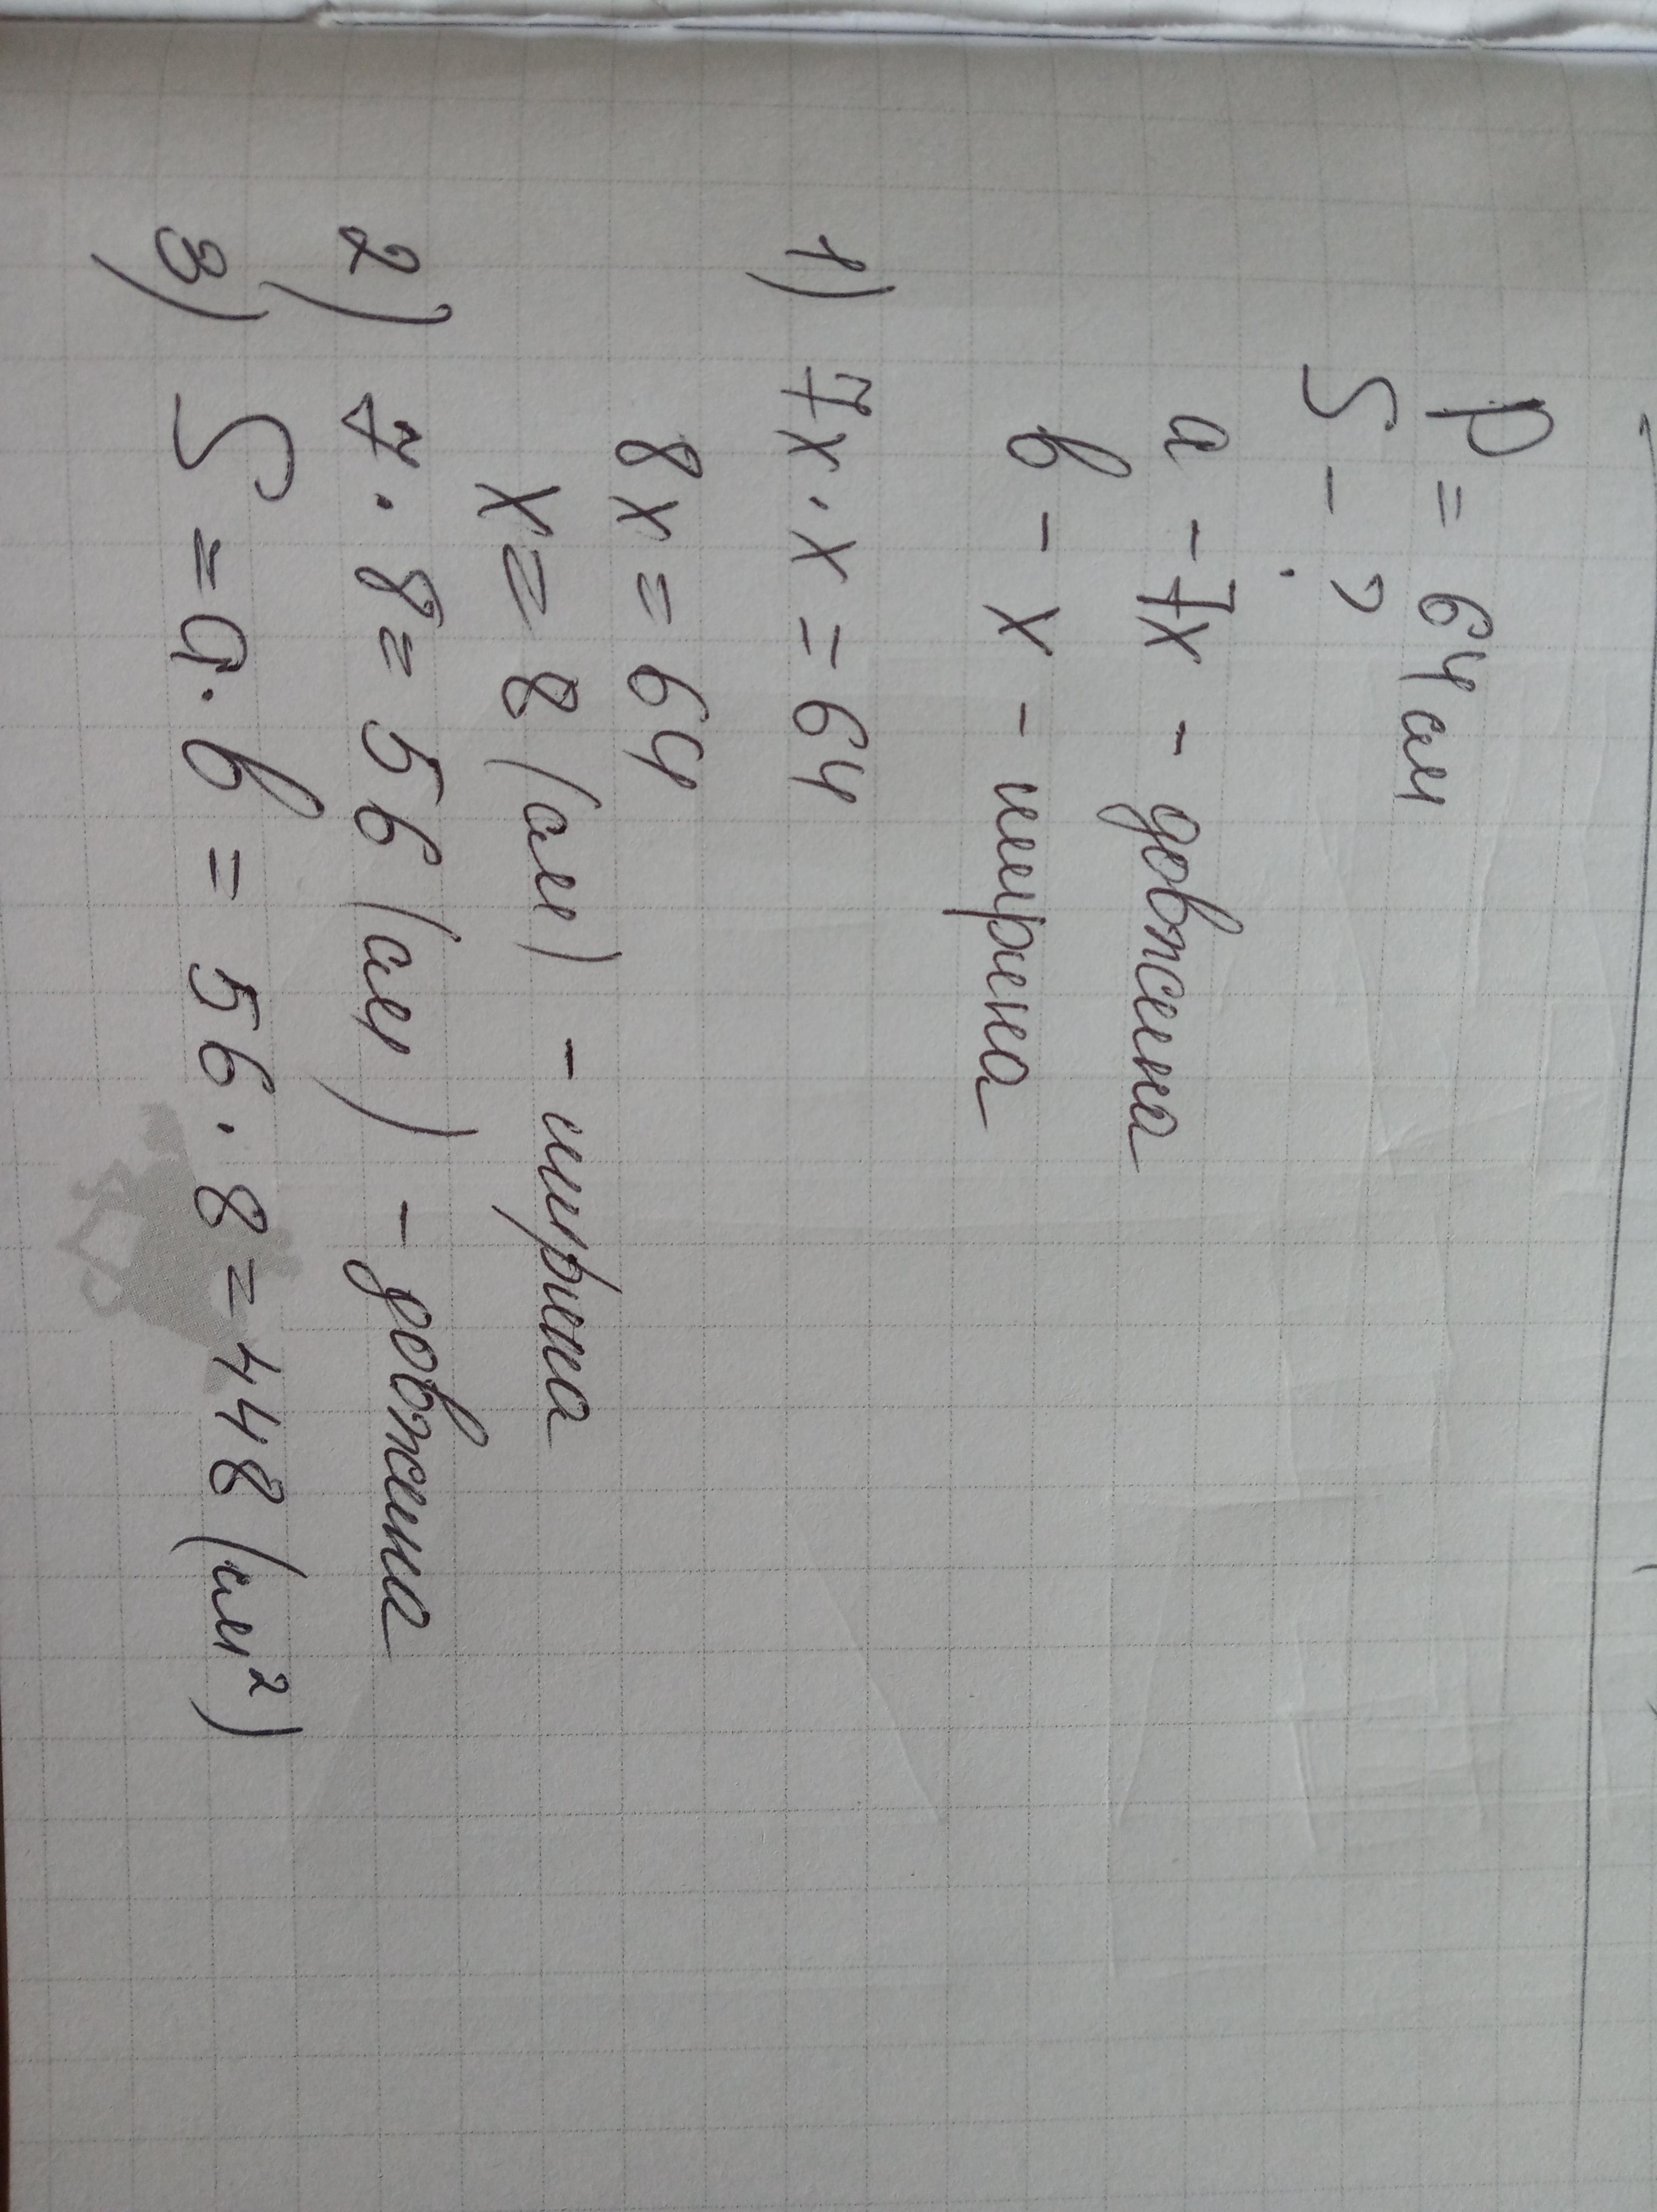 P = 64 см
S - ?
a - 7x - довжина
b - x - ширина
1) 7x · x = 64
8x = 64
x = 8 (см) - ширина
2) 7 · 8 = 56 (см) - довжина
3) S = a · b = 56 · 8 = 448 (см²)